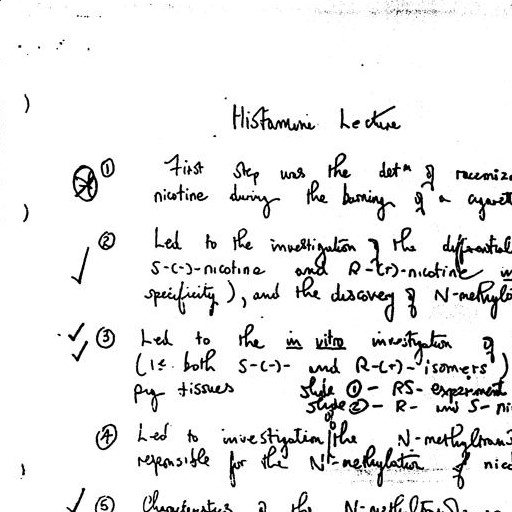 Histamine Lecture
① First step was the detⁿ of racemiz
nicotine during the burning of a cigarett
② Led to the investigation of the differential
S-(-)-nicotine and R-(+)-nicotine in
specificity), and the discovery of N-methyla
③ Led to the in vitro investigation of
(ie. both S-(-)- and R-(+)-isomers)
pig tissues slide ① - RS- experiment
slide ② - R- and S- ni
④ Led to investigation of the N-methyltrans
responsible for the N'-methylation of nico
⑤ Characteristics of the N-methyltransf